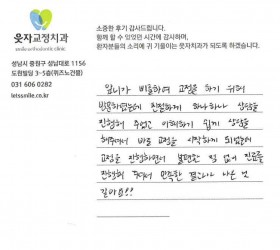 웃자교정치과
smile orthodontic clinic
성남시 중원구 성남대로 1156
도원빌딩 3~5층(위즈노건물)
031 606 0282
letssmile.co.kr
소중한 후기 감사드립니다.
함께 할 수 있었던 시간에 감사하며,
환자분들의 소리에 귀 기울이는 웃자치과가 되도록 하겠습니다.
입니가 비뚤하여 교정을 하기 위해
방문하였는데 친절하게 하나하나 상담을
진행해 주었고 이해하기 쉽게 상담을
해주셔서 바로 교정을 시작하게 되었는데
교정을 진행하면서 불편한 일 없이 진료를
진행해 주셔서 만족한 결과가 나온 것
같아요!!